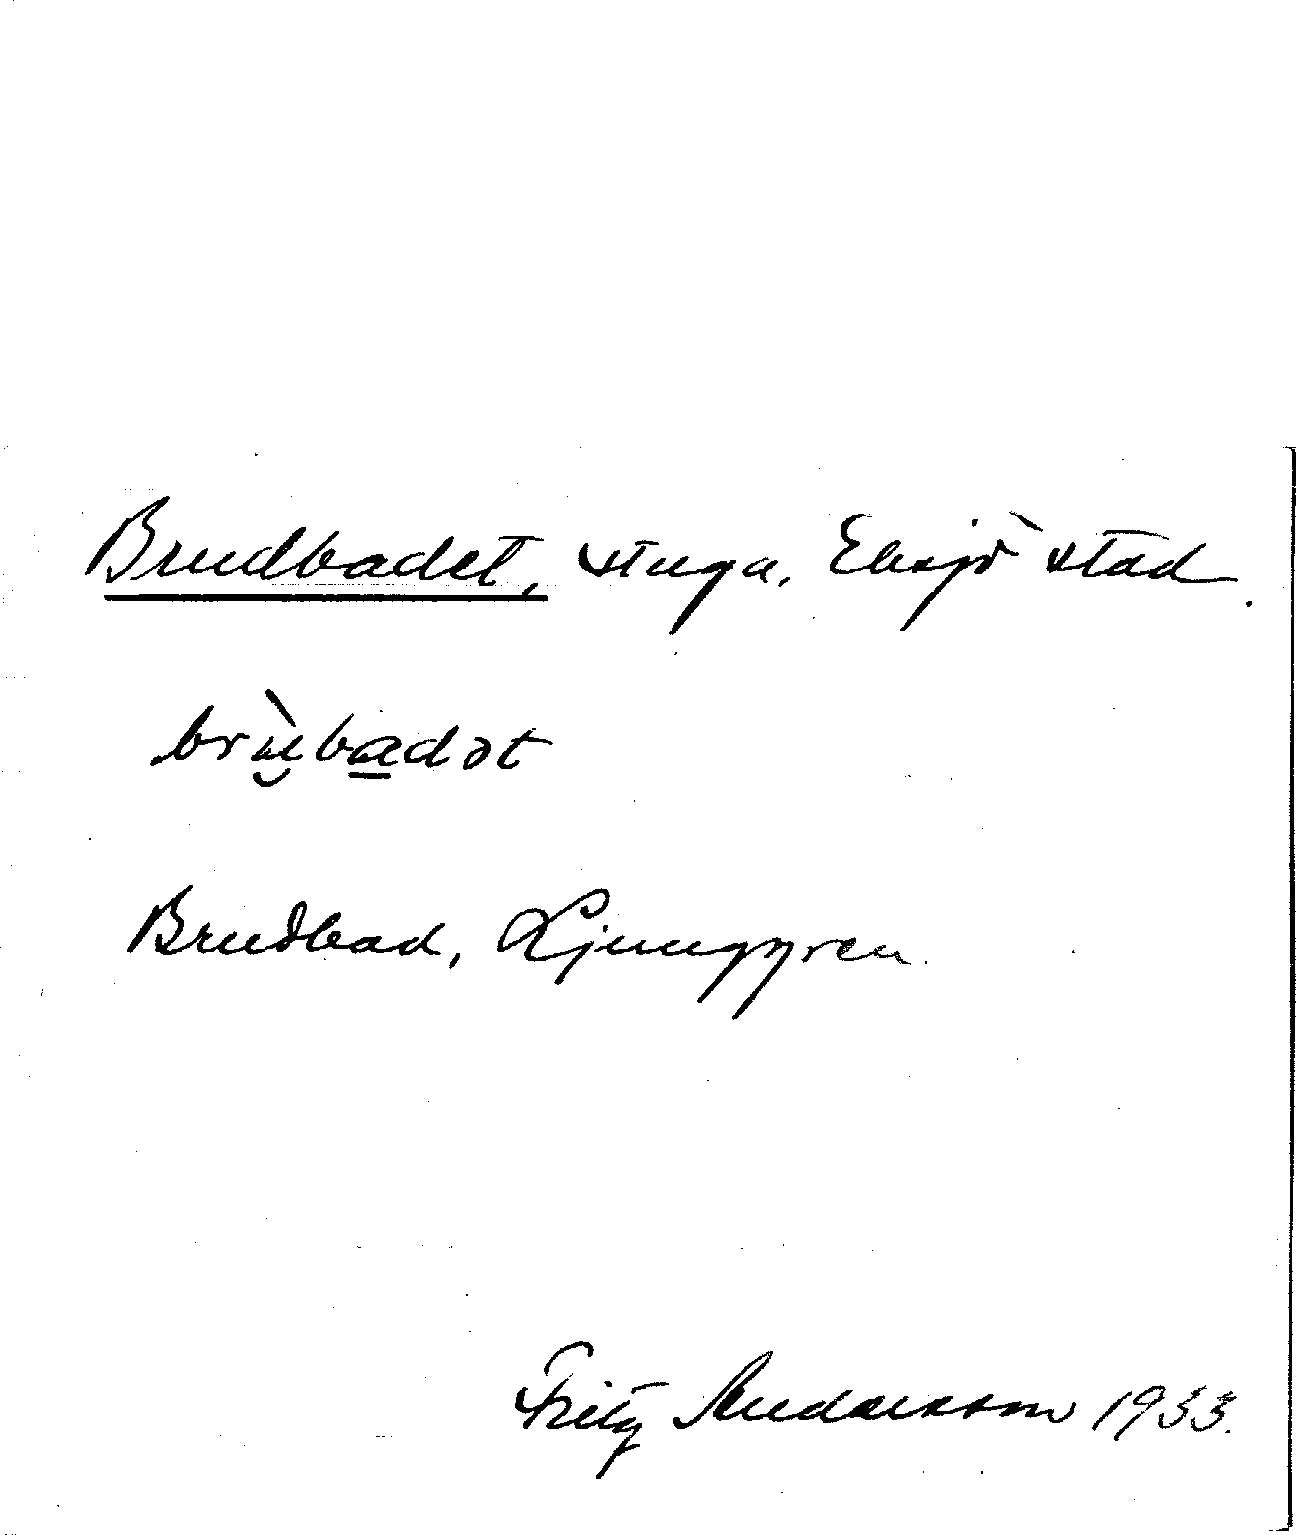 Brudbadet, stuga, Eksjö stad.
brùbadət
Brudbad, Ljunggren.
Fritz Andersson 1933.